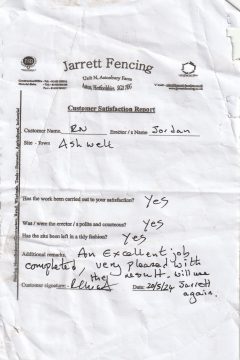 Jarrett Fencing
Unit M, Astonbury Farm
Aston, Hertfordshire, SG2 7EG
Customer Satisfaction Report
Customer Name RN Erector / s Name Jordan
Site - Town Ashwell
Has the work been carried out to your satisfaction? Yes
Was / were the erector / s polite and courteous? Yes
Has the site been left in a tidy fashion? Yes
Additional remarks. An Excellent job
completed, very pleased with
the result. will use
Customer signature: Date: 20/5/24 Jarrett
again.